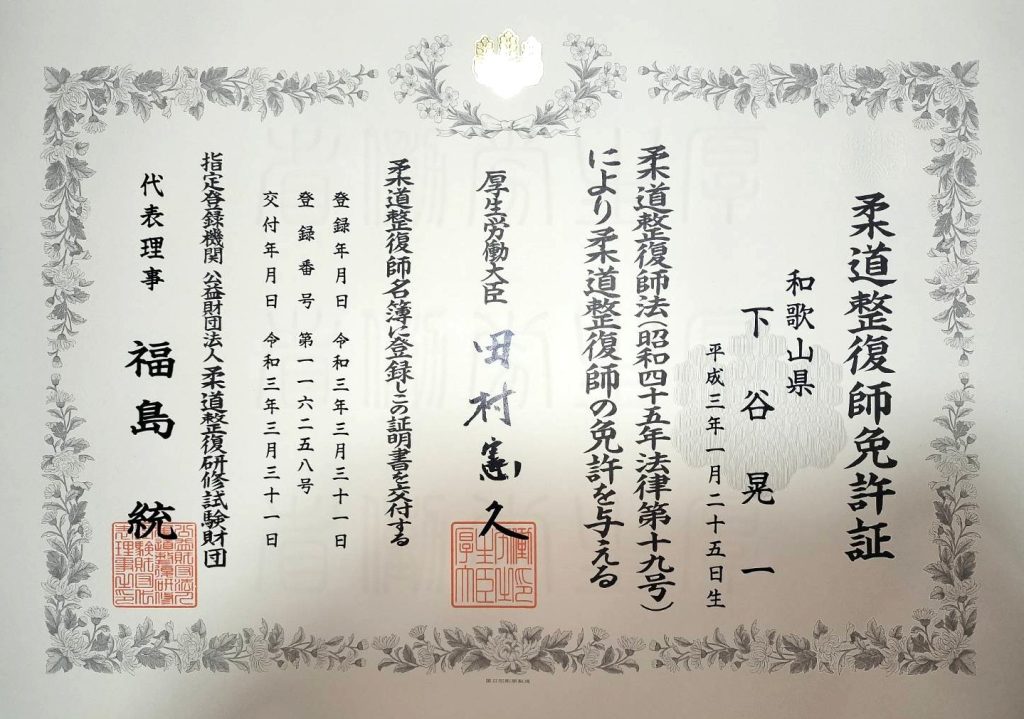 柔道整復師免許証
和歌山県
下谷晃一
平成三年一月二十五日生
柔道整復師法(昭和四十五年法律第十九号)
により柔道整復師の免許を与える
厚生労働大臣 田村憲久
柔道整復師名簿に登録しこの証明書を交付する
登録年月日 令和三年三月三十一日
登録番号 第一一六二五八号
交付年月日 令和三年三月三十一日
指定登録機関 公益財団法人柔道整復研修試験財団
代表理事 福島統